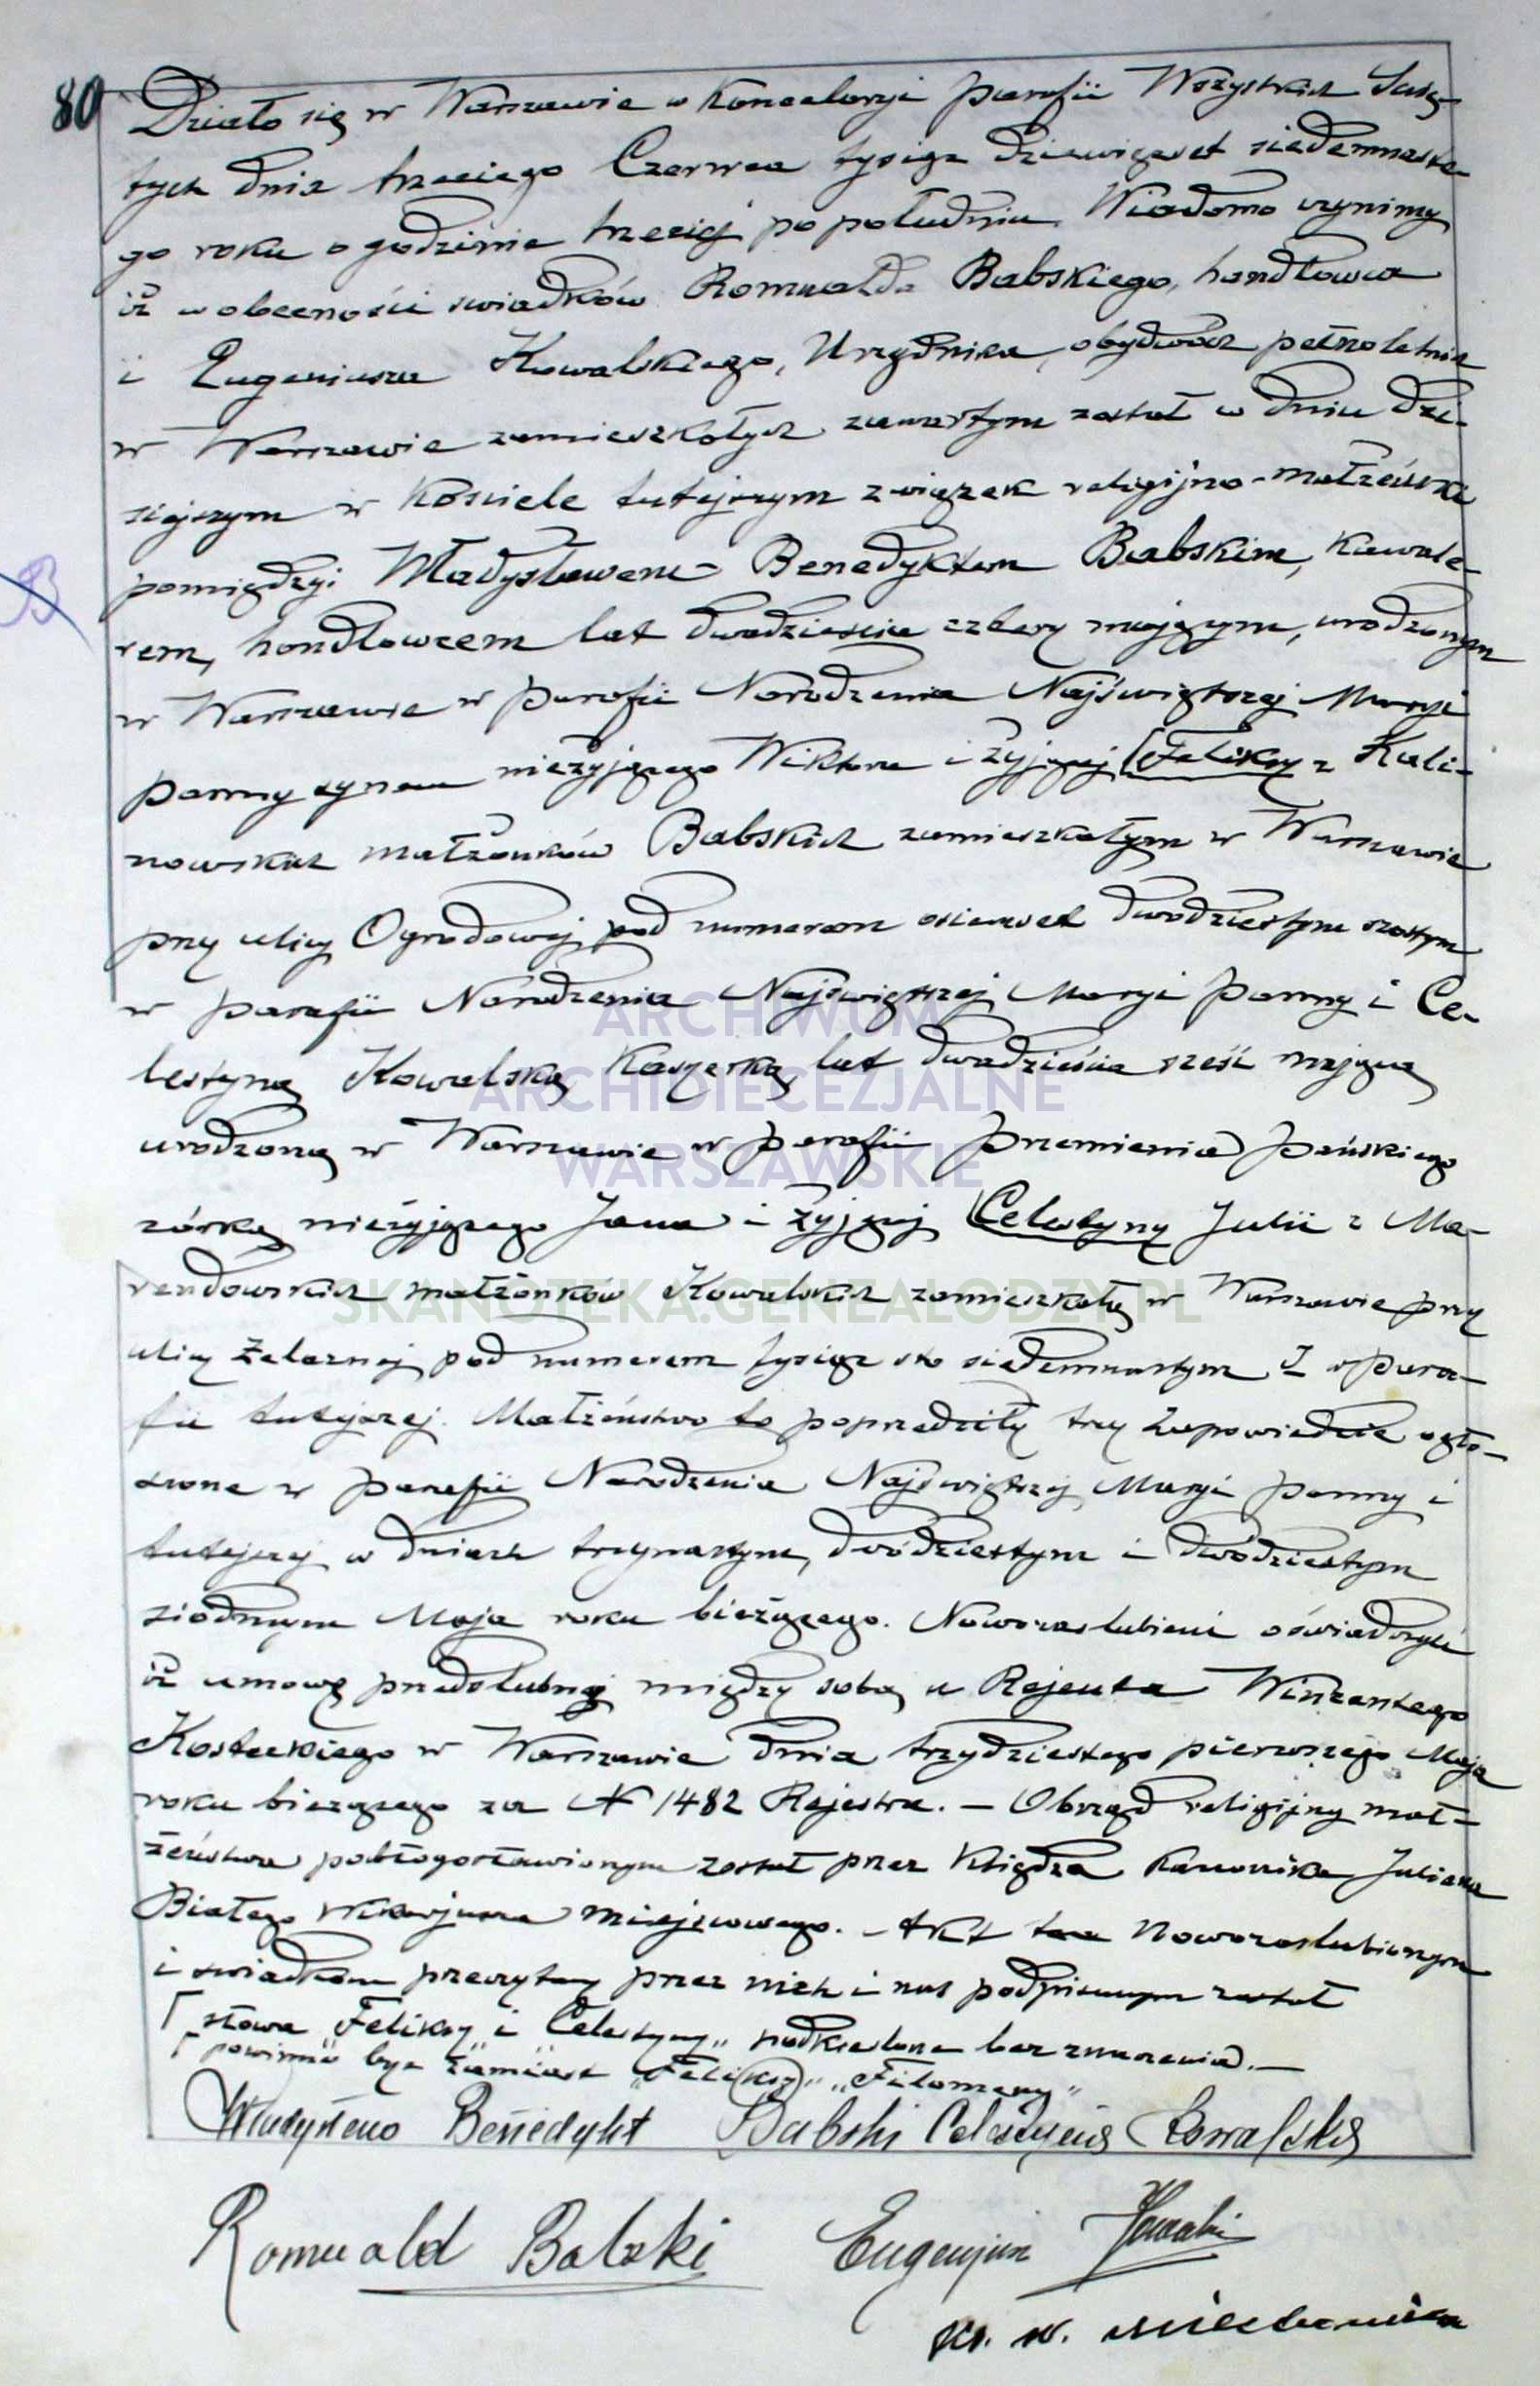 80 Działo się w Warszawie w Kancelaryi parafii Wszystkich Świę-
tych dnia trzeciego Czerwca tysiąc dziewięset siedemnaste-
go roku o godzinie trzeciej po południu. Wiadomo czynimy
iż w obecności swiadków Romualda Babskiego, handlowca
i Eugeniusza Kowalskiego, Urzędnika, obydwóch pełnoletnich
w Warszawie zamieszkałych zawartym został w dniu dzi-
siejszym w kościele tutejszym związek religijno-małżeński
pomiędzy Władysławem Benedyktem Babskim, kawale-
rem, handlowcem lat dwadzieścia cztery mającym, urodzonym
w Warszawie w parafii Narodzenia Najświętszej Maryi
panny synem nieżyjącego Wiktora i żyjącej Feliksy z Kali-
nowskich małżonków Babskich zamieszkałym w Warszawie
przy ulicy Ogrodowej pod numerem osiemset dwudziestym szóstym
w parafii Narodzenia Najświętszej Maryi Panny i Ce-
lestyną Kowalską Kasyerką, lat dwadzieścia sześć mającą
urodzoną w Warszawie w parafii przemienia pańskiego
córką nieżyjącego Jana i żyjącej Celestyny Julii z Ma-
rendowskich małżonków Kowalskich zamieszkałą w Warszawie przy
ulicy Żelaznej pod numerem tysiąc sto siedemnastym w para-
fii tutejszej. Małżeństwo to poprzedziły trzy zapowiedzie ogło-
szone w parafii Narodzenia Najświętszej Maryi panny i
tutejszej w dniach trzynastym, dwódziestym i dwódziestym
siódmym Maja roku bieżącego. Nowozaslubieni oświadczyli
iż umowę przedślubną między sobą u Rejenta Wincentego
Kosteckiego w Warszawie dnia trzydziestego pierwszego Maja
roku bieżącego za N 1482 Rejestra. — Obrząd religijny mał-
żeństwa pobłogosławionym został przez Księdza Kanonika Juliana
Białego Wikaryusza miejscowego. — Akt ten Nowozaslubionym
i swiadkom przeczytany przez nich i nas podpisanym został
słowa Feliksy i Celestyny" podkreślone bez znaczenia. —
powinno być zamiast "Feliksy" "Filomeny"
Władysław Benedykt Babski Celestyna Kowalska
Romuald Babski Eugenjusz Kowalski
Ks. W.